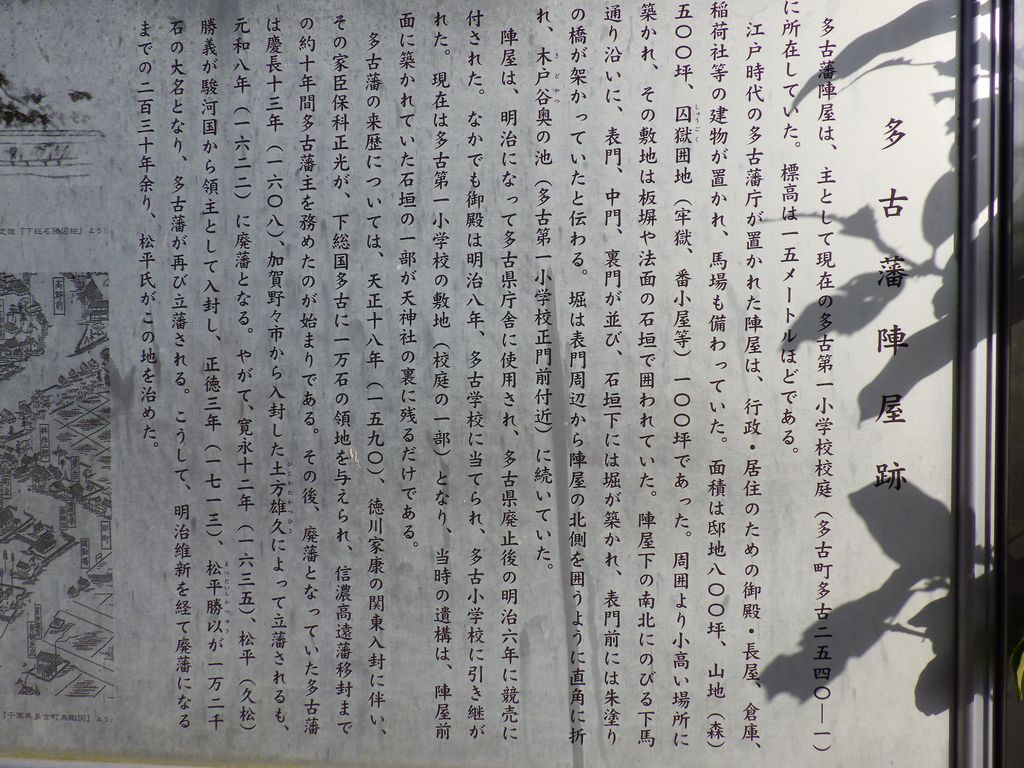 多古藩陣屋跡
多古藩陣屋は、主として現在の多古第一小学校校庭（多古町多古二五四〇―一）
に所在していた。標高は一五メートルほどである。
江戸時代の多古藩庁が置かれた陣屋は、行政・居住のための御殿・長屋、倉庫、
稲荷社等の建物が置かれ、馬場も備わっていた。面積は邸地八〇〇坪、山地（森）
五〇〇坪、囚獄囲地（牢獄、番小屋等）一〇〇坪であった。周囲より小高い場所に
築かれ、その敷地は板塀や法面の石垣で囲われていた。陣屋下の南北にのびる下馬
通り沿いに、表門、中門、裏門が並び、石垣下には堀が築かれ、表門前には朱塗り
の橋が架かっていたと伝わる。堀は表門周辺から陣屋の北側を囲うように直角に折
れ、木戸谷奥の池（多古第一小学校正門前付近）に続いていた。
陣屋は、明治になって多古県庁舎に使用され、多古県廃止後の明治六年に競売に
付された。なかでも御殿は明治八年、多古学校に当てられ、多古小学校に引き継が
れた。現在は多古第一小学校の敷地（校庭の一部）となり、当時の遺構は、陣屋前
面に築かれていた石垣の一部が天神社の裏に残るだけである。
多古藩の来歴については、天正十八年（一五九〇）、徳川家康の関東入封に伴い、
その家臣保科正光が、下総国多古に一万石の領地を与えられ、信濃高遠藩移封まで
の約十年間多古藩主を務めたのが始まりである。その後、廃藩となっていた多古藩
は慶長十三年（一六〇八）、加賀野々市から入封した土方雄久によって立藩されるも、
元和八年（一六二二）に廃藩となる。やがて、寛永十二年（一六三五）、松平（久松）
勝義が駿河国から領主として入封し、正徳三年（一七一三）、松平勝以が一万二千
石の大名となり、多古藩が再び立藩される。こうして、明治維新を経て廃藩になる
までの二百三十年余り、松平氏がこの地を治めた。
『下総名勝図絵』より
『千葉県多古町鳥瞰図』より